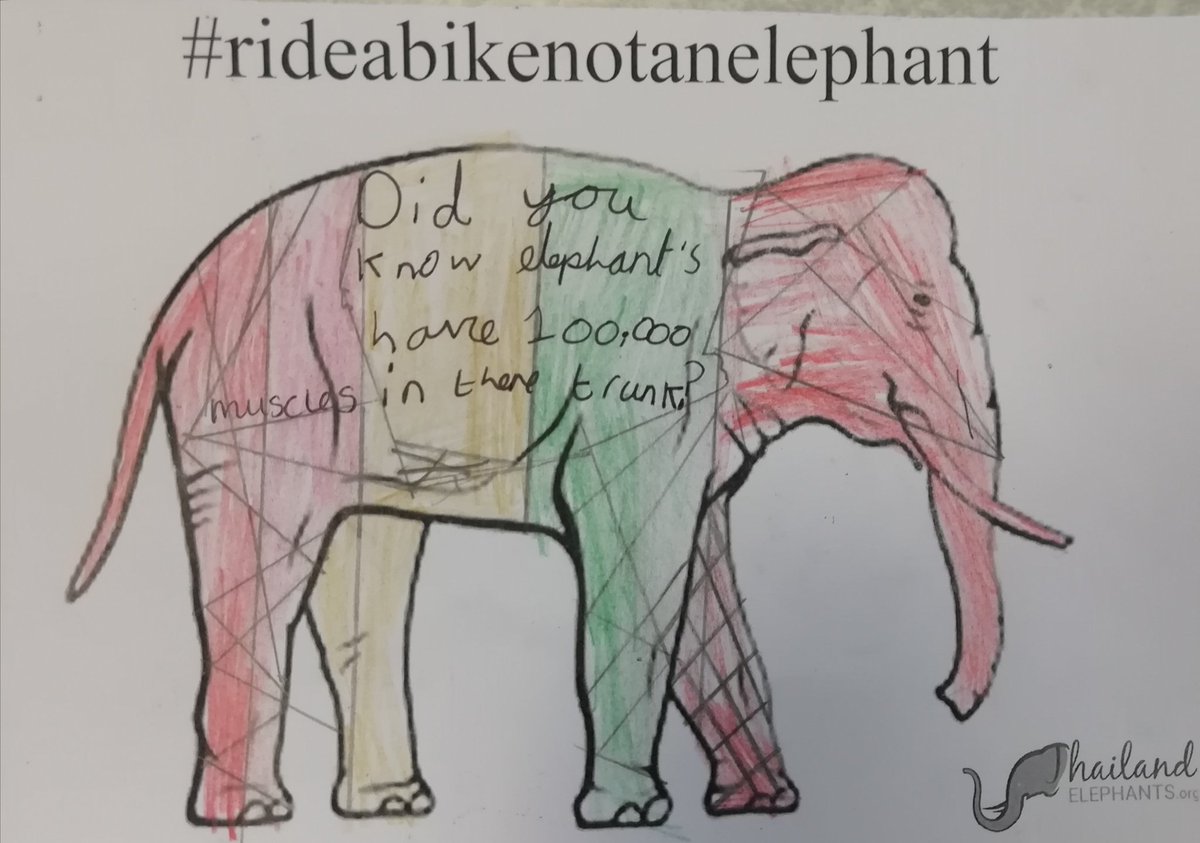 #rideabikenotanelephant
Did you
know elephant's
have 100,000
muscles in there trunk?
Thailand
ELEPHANTS.org